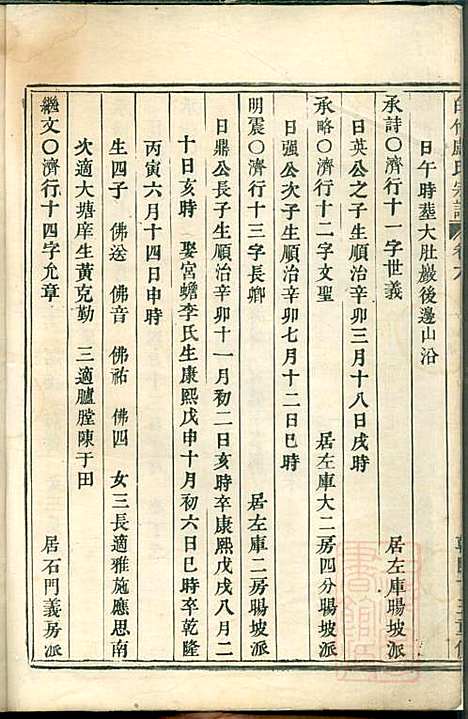 日午時葬大肚巖後邊山沿
承詩〇濟行十一字世義 居左庫暘坡派
日英公之子生順治辛卯三月十八日戌時
承略〇濟行十二字文聖 居左庫大二房四分暘坡派
日强公次子生順治辛卯七月十二日巳時
明震〇濟行十三字長卿 居左庫二房暘坡派
日鼎公長子生順治辛卯十一月初二日亥時卒康熙戊戌八月二
十日亥時 娶宮蟾李氏生康熙戊申十月初六日巳時卒乾隆
丙寅六月十四日申時
生四子 佛送 佛音 佛祐 佛四 女三長適雅施應思南
次適大塘庠生黃克勤 三適臚膛陳于田
繼文〇濟行十四字允章 居石門義房派